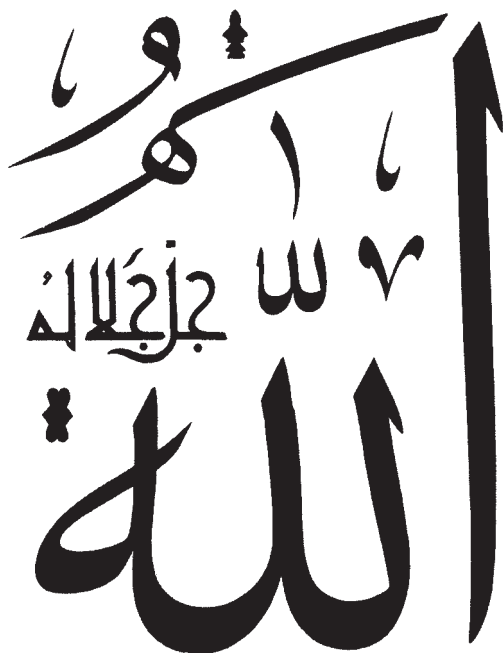 الله
جل جَلالهُ